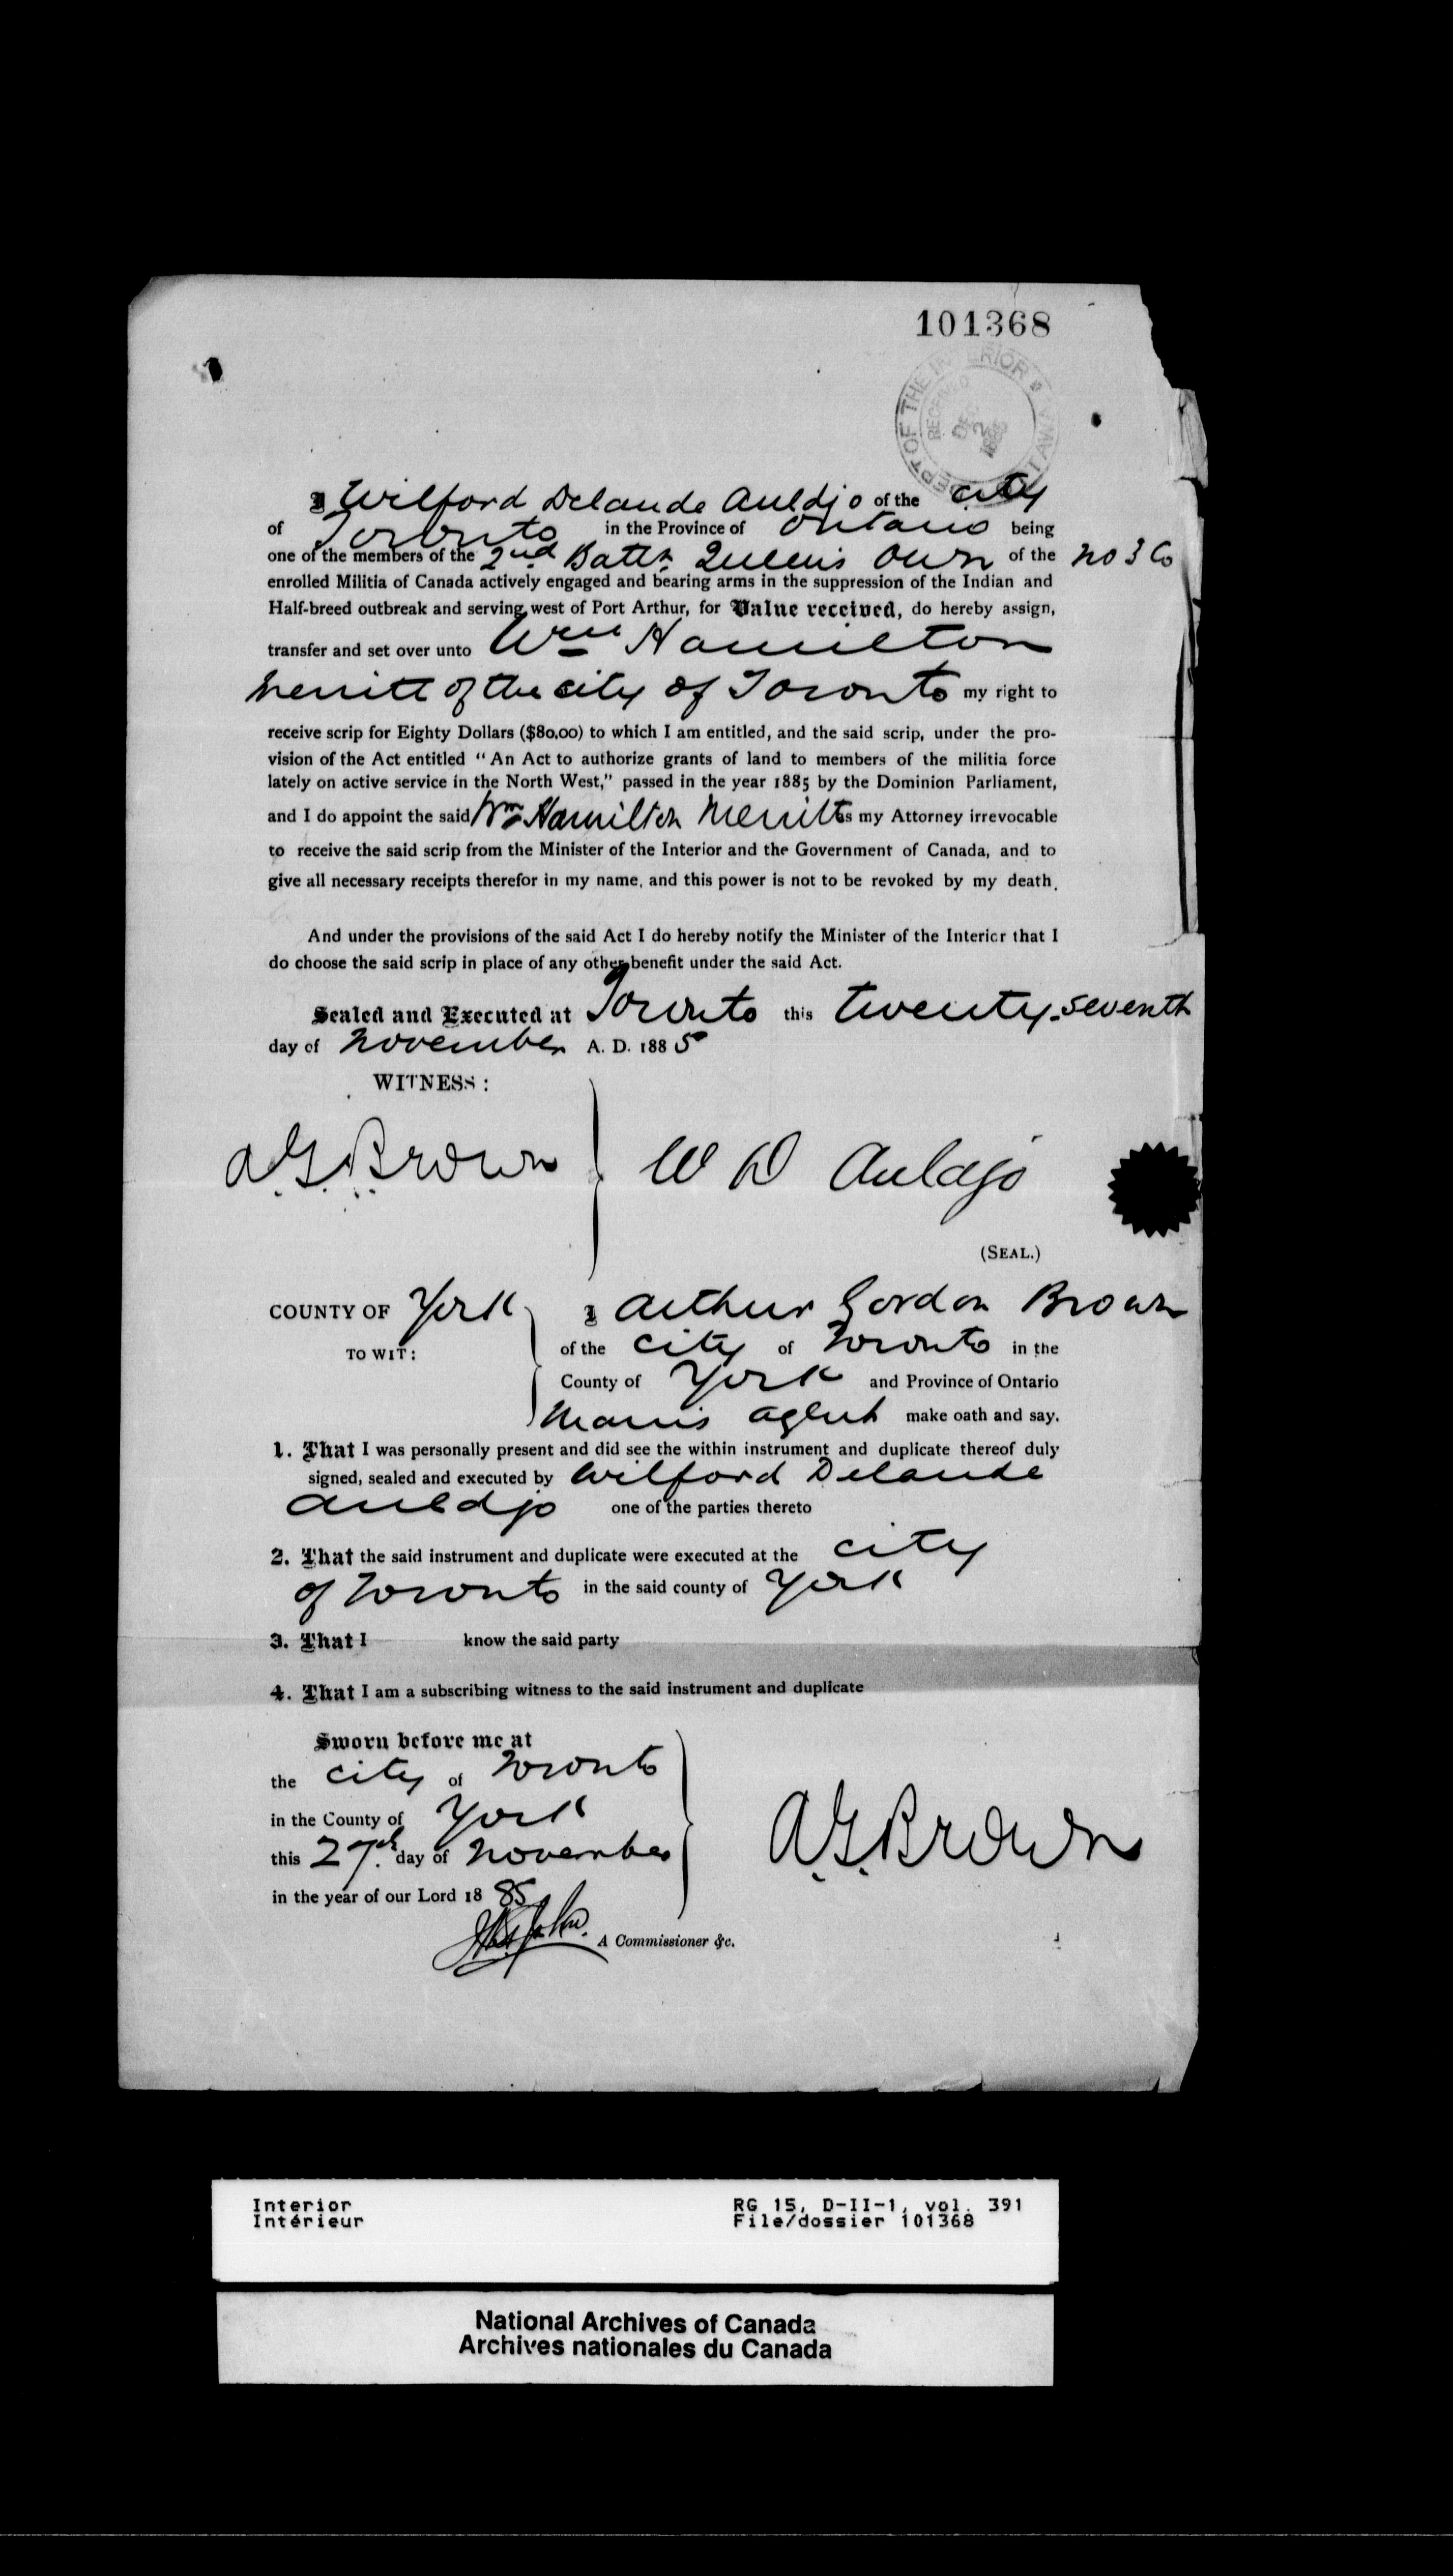 101368
DEPT OF THE INTERIOR OTTAWA
RECEIVED
DEC 2 1885
I Wilford Delaude Auldjo of the City
of Toronto in the Province of Ontario being
one of the members of the 2nd Battn Queens Own of the No 3 Co
enrolled Militia of Canada actively engaged and bearing arms in the suppression of the Indian and
Half-breed outbreak and serving west of Port Arthur, for Value received, do hereby assign,
transfer and set over unto Wm Hamilton
Merritt of the city of Toronto my right to
receive scrip for Eighty Dollars ($80.00) to which I am entitled, and the said scrip, under the pro-
vision of the Act entitled "An Act to authorize grants of land to members of the militia force
lately on active service in the North West," passed in the year 1885 by the Dominion Parliament,
and I do appoint the said Wm Hamilton Merritt as my Attorney irrevocable
to receive the said scrip from the Minister of the Interior and the Government of Canada, and to
give all necessary receipts therefor in my name, and this power is not to be revoked by my death.
And under the provisions of the said Act I do hereby notify the Minister of the Interior that I
do choose the said scrip in place of any other benefit under the said Act.
Sealed and Executed at Toronto this twenty-seventh
day of November A. D. 1885
WITNESS:
A.G. Brown W D Auldjo
(SEAL.)
COUNTY OF York I Arthur Gordon Brown
TO WIT: of the City of Toronto in the
County of York and Province of Ontario
agent make oath and say.
1. That I was personally present and did see the within instrument and duplicate thereof duly
signed, sealed and executed by Wilford Delaude
Auldjo one of the parties thereto
2. That the said instrument and duplicate were executed at the City
of Toronto in the said county of York
3. That I know the said party
4. That I am a subscribing witness to the said instrument and duplicate
Sworn before me at
the City of Toronto
in the County of York
this 27th day of November A.G. Brown
in the year of our Lord 1885
A Commissioner &c.
Interior RG 15, D-II-1, vol. 391
Intérieur File/dossier 101368
National Archives of Canada
Archives nationales du Canada